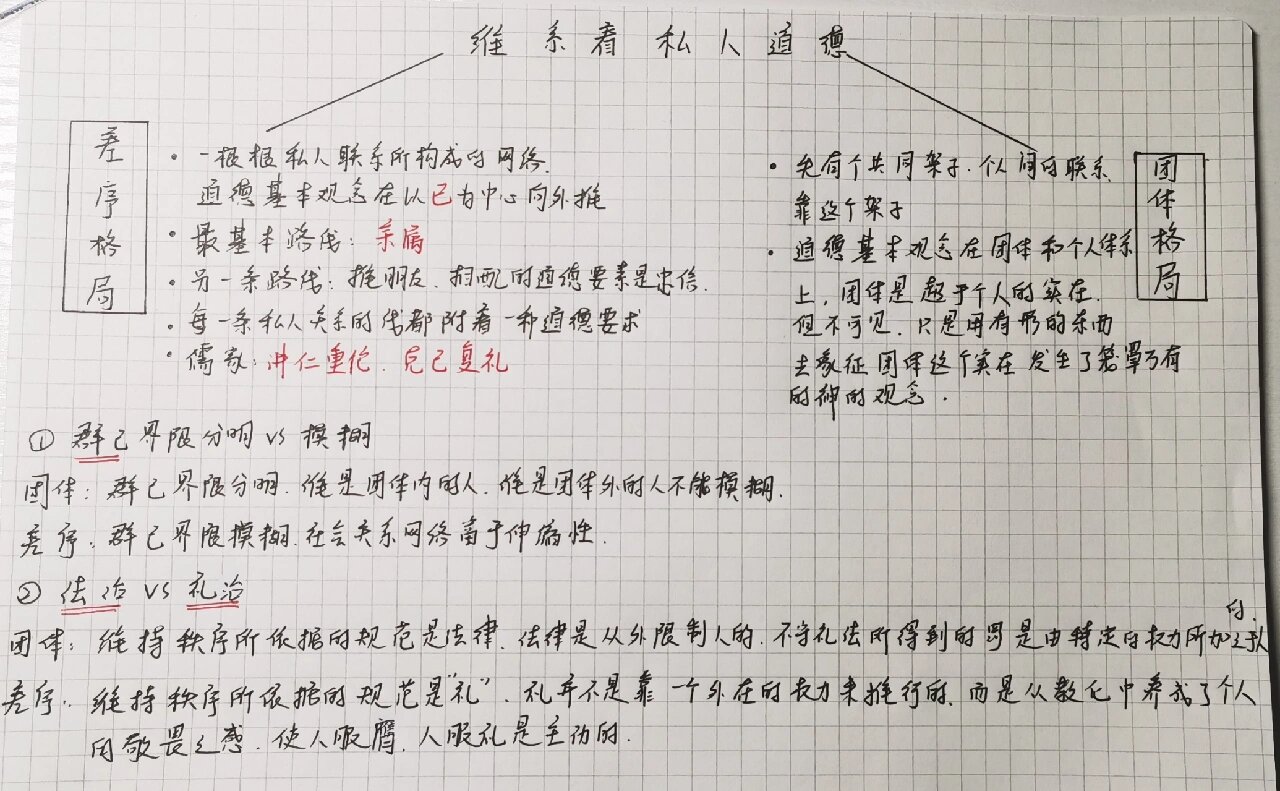 维系着私人道德
差序格局
·一根根私人联系所构成的网络.
道德基本观念在以己为中心向外推
·最基本路线：亲属
·另一条路线：推朋友.相配的道德要素是忠信.
·每一条私人关系的线都附着一种道德要求
·儒家：冲仁重伦.克己复礼
团体格局
·先有个共同架子.个人间的联系.
靠这个架子
·道德基本观念在团体和个人体系
上.团体是超于个人的实在.
但不可见.只是用有形的东西
去象征团体这个实在发生了笼罩万有
的神的观念.
①群己界限分明 VS 模糊
团体：群己界限分明.谁是团体内的人.谁是团体外的人不能模糊.
差序：群己界限模糊.社会关系网络富于伸缩性.
②法治 VS 礼治
团体：维持秩序所依据的规范是法律.法律是从外限制人的.不守礼法所得到的罚是由特定的权力所加之于人的.
差序：维持秩序所依据的规范是"礼".礼并不是靠一个外在的权力来推行的.而是从教化中养成了个人
的敬畏之感.使人服膺.人服礼是主动的.